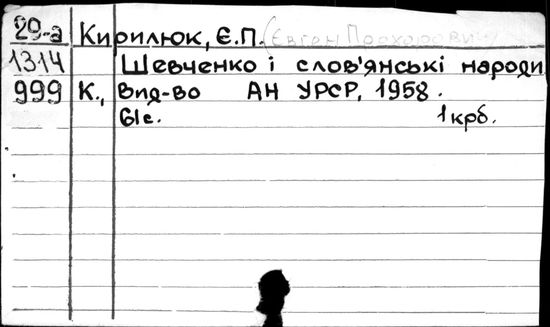 29-а Кирилюк, Є.П. (Євген Прохорович
1314 Шевченко і слов'янські народи
999 К., Вид-во АН УРСР, 1958.
61с. 1крб.